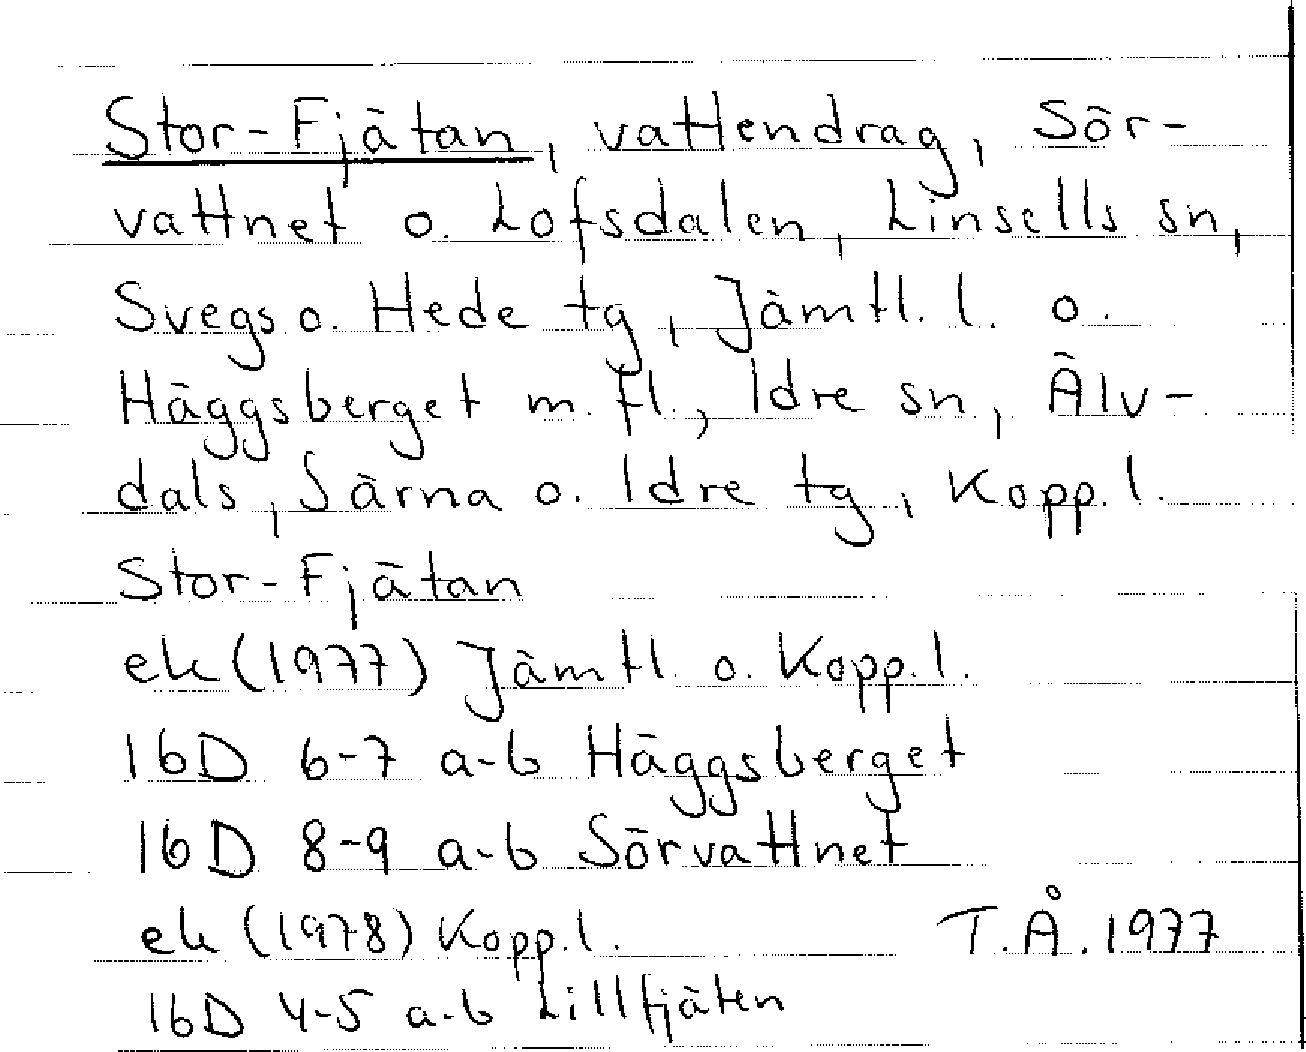 Stor-Fjätan, vattendrag, Sör-
vattnet o. Lofsdalen, Linsells sn,
Svegs o. Hede tg, Jämtl. l. o.
Häggsberget m. fl., Idre sn, Älv-
dals, Särna o. Idre tg, Kopp. l.
Stor-Fjätan
ek (1977) Jämtl. o. Kopp. l.
16D 6-7 a-b Häggsberget
16D 8-9 a-b Sörvattnet
ek (1978) Kopp. l. T.Å. 1977
16D 4-5 a-b Lillfjäten